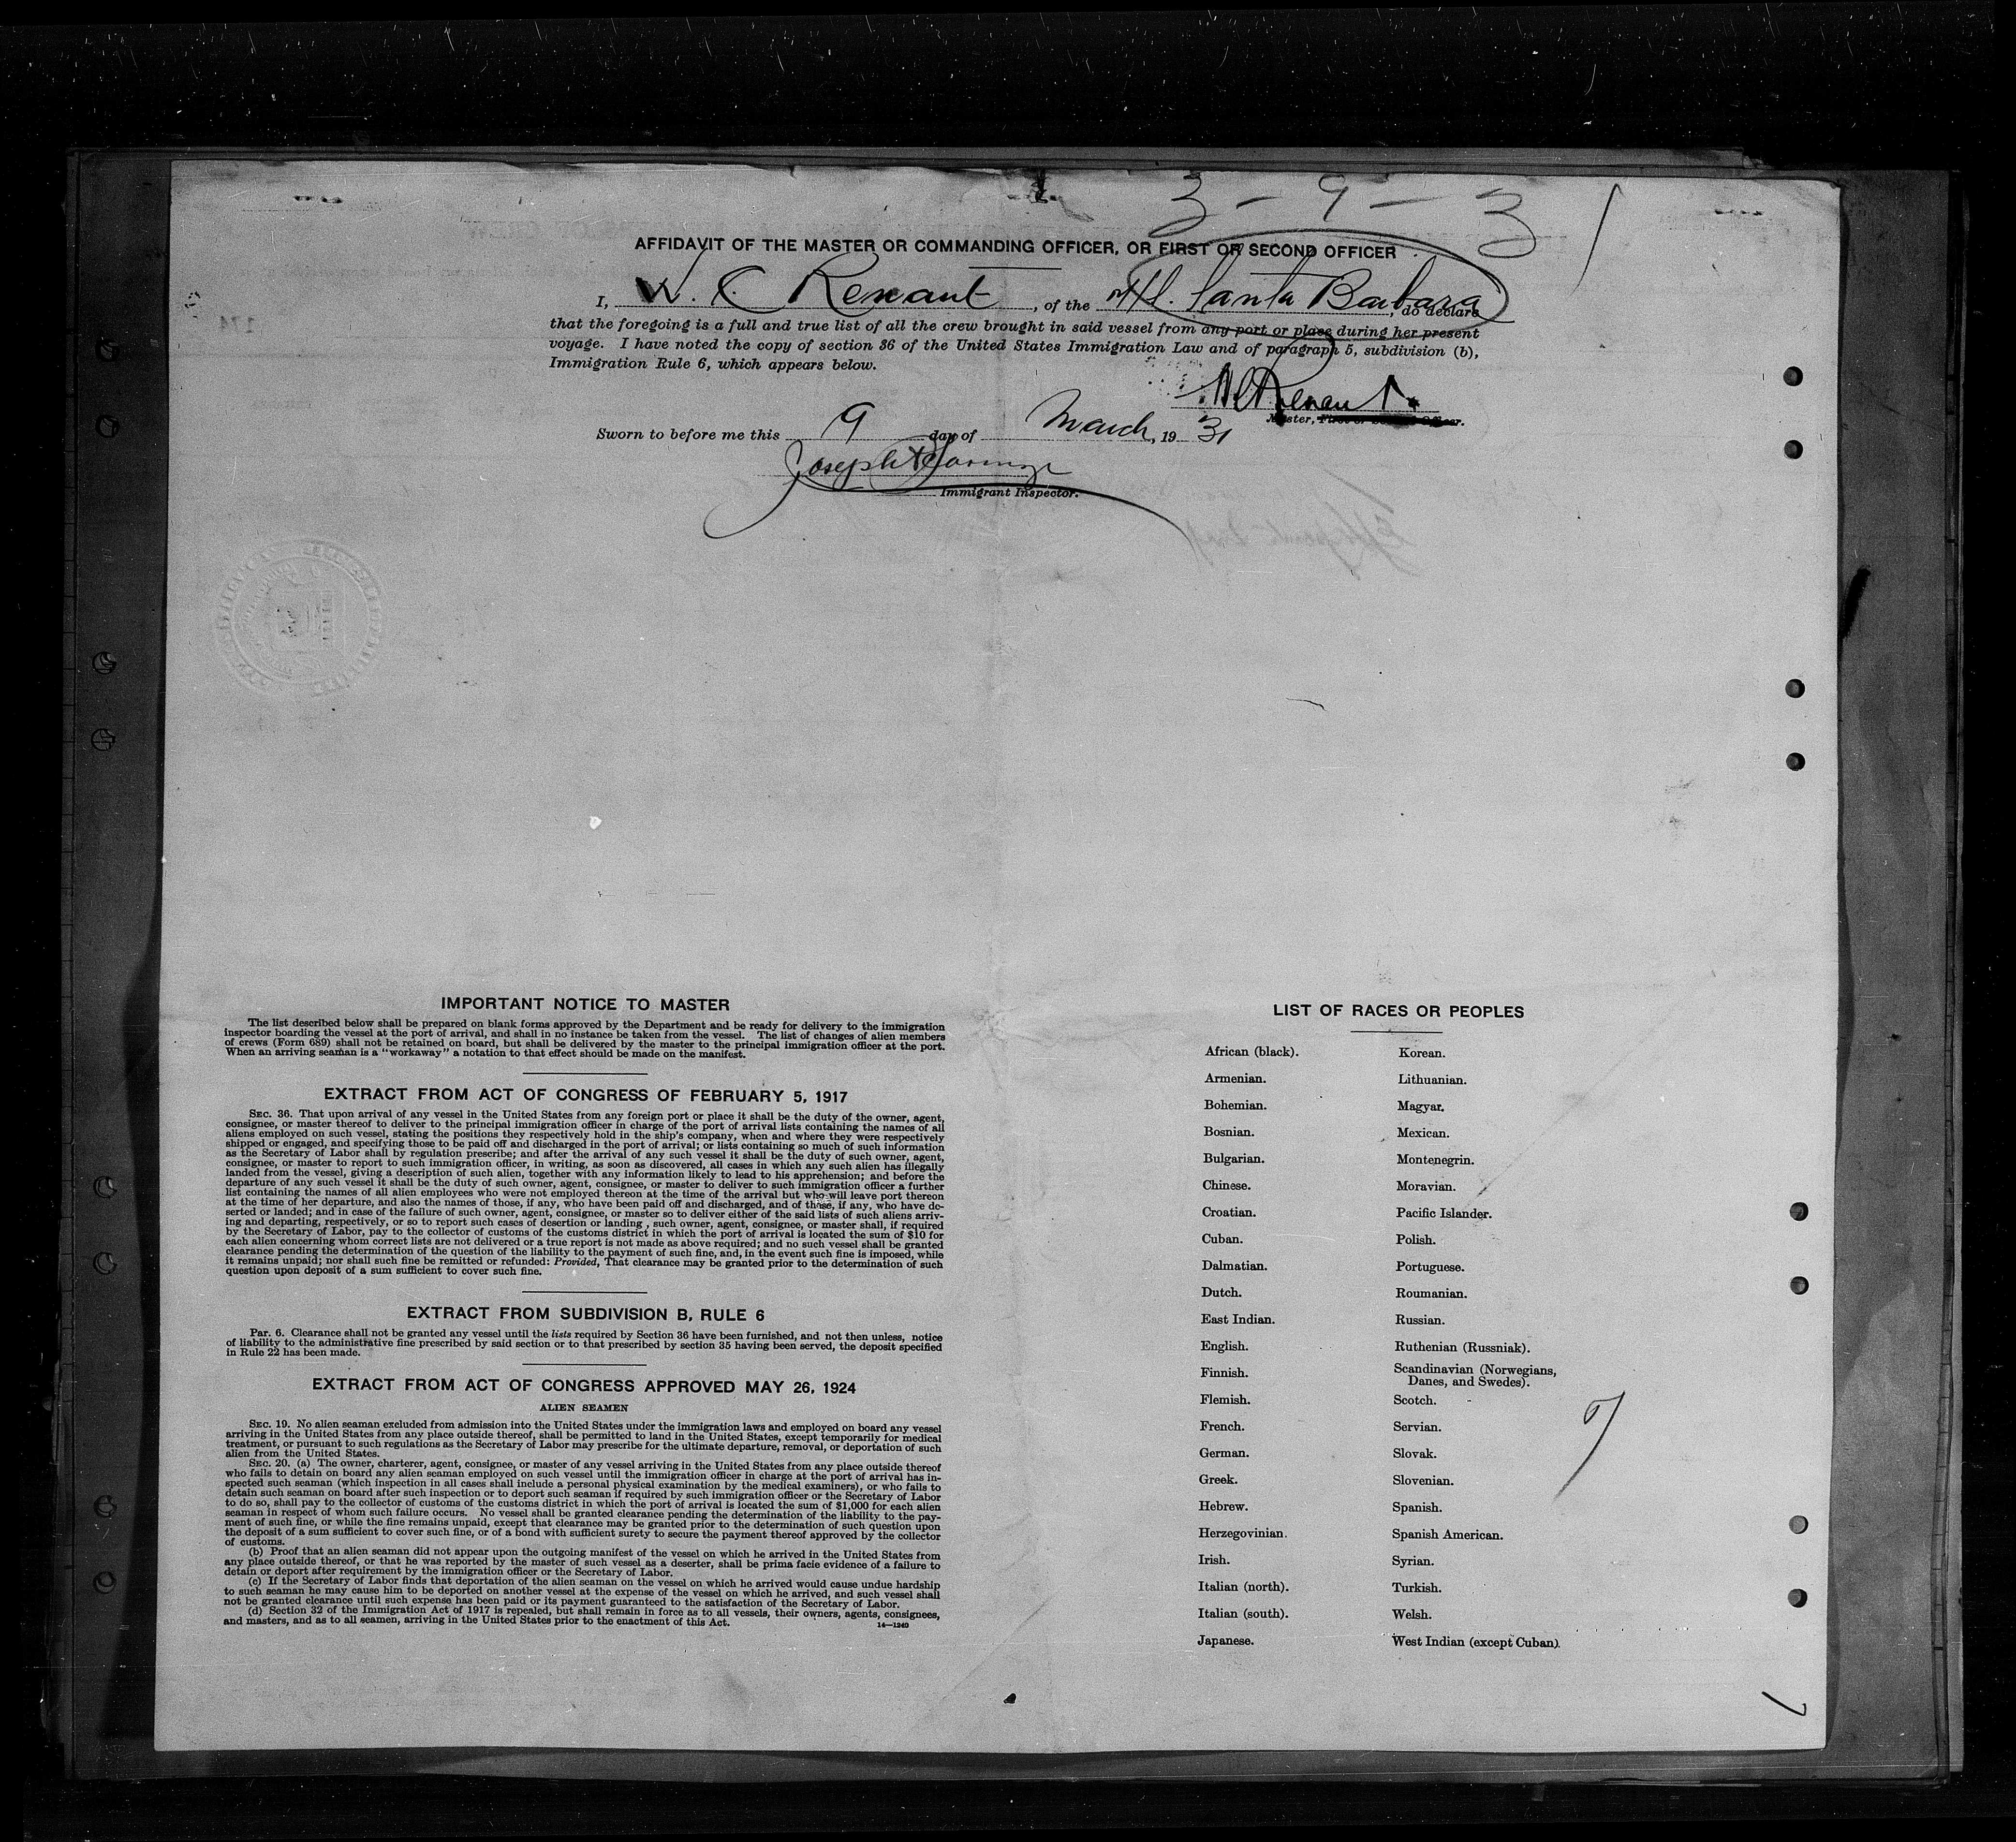 3-9-31
AFFIDAVIT OF THE MASTER OR COMMANDING OFFICER, OR FIRST OR SECOND OFFICER
I, W. C Renaut, of the M/S. Santa Barbara, do declare
that the foregoing is a full and true list of all the crew brought in said vessel from any port or place during her present
voyage. I have noted the copy of section 36 of the United States Immigration Law and of paragraph 5, subdivision (b),
Immigration Rule 6, which appears below.
Renaut
Master, First or Second Officer.
Sworn to before me this 9 day of March, 1931
Joseph
Immigrant Inspector.
IMPORTANT NOTICE TO MASTER
The list described below shall be prepared on blank forms approved by the Department and be ready for delivery to the immigration
inspector boarding the vessel at the port of arrival, and shall in no instance be taken from the vessel. The list of changes of alien members
of crews (Form 689) shall not be retained on board, but shall be delivered by the master to the principal immigration officer at the port.
When an arriving seaman is a "workaway" a notation to that effect should be made on the manifest.
EXTRACT FROM ACT OF CONGRESS OF FEBRUARY 5, 1917
SEC. 36. That upon arrival of any vessel in the United States from any foreign port or place it shall be the duty of the owner, agent,
consignee, or master thereof to deliver to the principal immigration officer in charge of the port of arrival lists containing the names of all
aliens employed on such vessel, stating the positions they respectively hold in the ship's company, when and where they were respectively
shipped or engaged, and specifying those to be paid off and discharged in the port of arrival; or lists containing so much of such information
as the Secretary of Labor shall by regulation prescribe; and after the arrival of any such vessel it shall be the duty of such owner, agent,
consignee, or master to report to such immigration officer, in writing, as soon as discovered, all cases in which any such alien has illegally
landed from the vessel, giving a description of such alien, together with any information likely to lead to his apprehension; and before the
departure of any such vessel it shall be the duty of such owner, agent, consignee, or master to deliver to such immigration officer a further
list containing the names of all alien employees who were not employed thereon at the time of the arrival but who will leave port thereon
at the time of her departure, and also the names of those, if any, who have been paid off and discharged, and of those, if any, who have de-
serted or landed; and in case of the failure of such owner, agent, consignee, or master so to deliver either of the said lists of such aliens arriv-
ing and departing, respectively, or so to report such cases of desertion or landing , such owner, agent, consignee, or master shall, if required
by the Secretary of Labor, pay to the collector of customs of the customs district in which the port of arrival is located the sum of $10 for
each alien concerning whom correct lists are not delivered or a true report is not made as above required; and no such vessel shall be granted
clearance pending the determination of the question of the liability to the payment of such fine, and, in the event such fine is imposed, while
it remains unpaid; nor shall such fine be remitted or refunded: Provided, That clearance may be granted prior to the determination of such
question upon deposit of a sum sufficient to cover such fine.
EXTRACT FROM SUBDIVISION B, RULE 6
Par. 6. Clearance shall not be granted any vessel until the lists required by Section 36 have been furnished, and not then unless, notice
of liability to the administrative fine prescribed by said section or to that prescribed by section 35 having been served, the deposit specified
in Rule 22 has been made.
EXTRACT FROM ACT OF CONGRESS APPROVED MAY 26, 1924
ALIEN SEAMEN
SEC. 19. No alien seaman excluded from admission into the United States under the immigration laws and employed on board any vessel
arriving in the United States from any place outside thereof, shall be permitted to land in the United States, except temporarily for medical
treatment, or pursuant to such regulations as the Secretary of Labor may prescribe for the ultimate departure, removal, or deportation of such
alien from the United States.
SEC. 20. (a) The owner, charterer, agent, consignee, or master of any vessel arriving in the United States from any place outside thereof
who fails to detain on board any alien seaman employed on such vessel until the immigration officer in charge at the port of arrival has in-
spected such seaman (which inspection in all cases shall include a personal physical examination by the medical examiners), or who fails to
detain such seaman on board after such inspection or to deport such seaman if required by such immigration officer or the Secretary of Labor
to do so, shall pay to the collector of customs of the customs district in which the port of arrival is located the sum of $1,000 for each alien
seaman in respect of whom such failure occurs. No vessel shall be granted clearance pending the determination of the liability to the pay-
ment of such fine, or while the fine remains unpaid, except that clearance may be granted prior to the determination of such question upon
the deposit of a sum sufficient to cover such fine, or of a bond with sufficient surety to secure the payment thereof approved by the collector
of customs.
(b) Proof that an alien seaman did not appear upon the outgoing manifest of the vessel on which he arrived in the United States from
any place outside thereof, or that he was reported by the master of such vessel as a deserter, shall be prima facie evidence of a failure to
detain or deport after requirement by the immigration officer or the Secretary of Labor.
(c) If the Secretary of Labor finds that deportation of the alien seaman on the vessel on which he arrived would cause undue hardship
to such seaman he may cause him to be deported on another vessel at the expense of the vessel on which he arrived, and such vessel shall
not be granted clearance until such expense has been paid or its payment guaranteed to the satisfaction of the Secretary of Labor.
(d) Section 32 of the Immigration Act of 1917 is repealed, but shall remain in force as to all vessels, their owners, agents, consignees,
and masters, and as to all seamen, arriving in the United States prior to the enactment of this Act.
14—1240
LIST OF RACES OR PEOPLES
African (black).
Armenian.
Bohemian.
Bosnian.
Bulgarian.
Chinese.
Croatian.
Cuban.
Dalmatian.
Dutch.
East Indian.
English.
Finnish.
Flemish.
French.
German.
Greek.
Hebrew.
Herzegovinian.
Irish.
Italian (north).
Italian (south).
Japanese.
Korean.
Lithuanian.
Magyar.
Mexican.
Montenegrin.
Moravian.
Pacific Islander.
Polish.
Portuguese.
Roumanian.
Russian.
Ruthenian (Russniak).
Scandinavian (Norwegians,
Danes, and Swedes).
Scotch.
Servian.
Slovak.
Slovenian.
Spanish.
Spanish American.
Syrian.
Turkish.
Welsh.
West Indian (except Cuban).